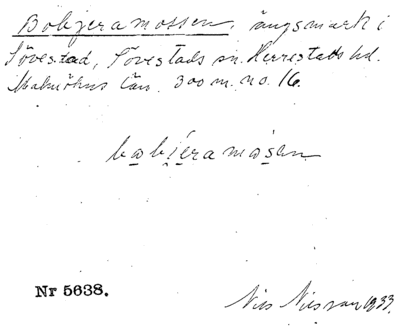 Bobjeramossen, ängsmark i
Sövestad, Sövestads sn. Herrestads hd.
Malmöhus län. 300 m. no. 16.
bobjeramosen
Nr 5638.
Nils Nilsson 1933.